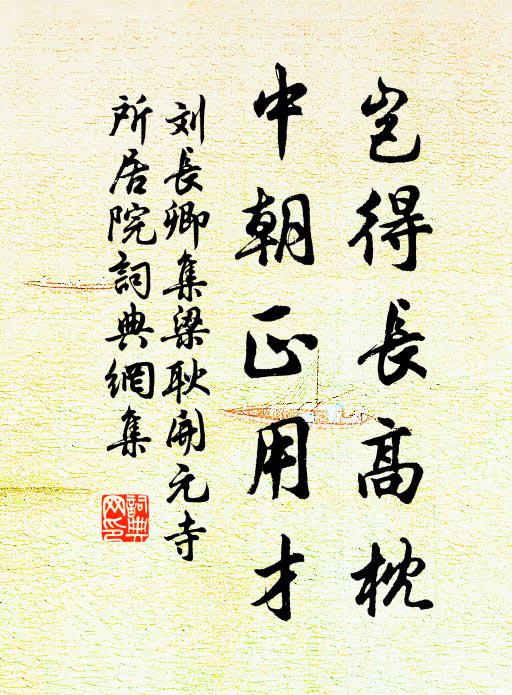 岂得長高枕
中朝正用才
刘長卿集梁耿開元寺
所居院詞典網集
詞典網印